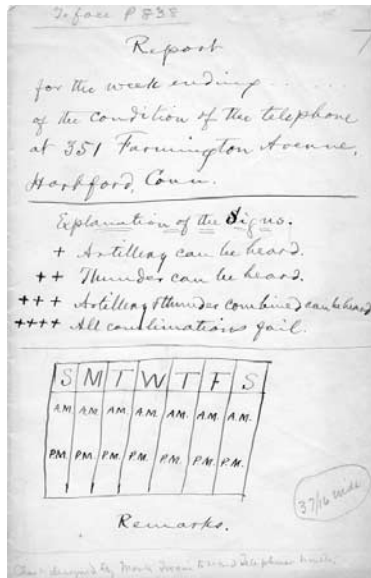 To face P 838
Report
for the week ending . . . . . .
of the condition of the telephone
at 351 Farmington Avenue,
Hartford, Conn.
Explanation of the Signs.
+ Artillery can be heard.
++ Thunder can be heard.
+++ Artillery & thunder combined can be heard
++++ All combinations fail.
S M T W T F S
A.M. A.M. A.M. A.M. A.M. A.M. A.M.
P.M. P.M. P.M. P.M. P.M. P.M. P.M.
3 7/16 wide
Remarks.
Chart designed by Mark Twain to record telephone